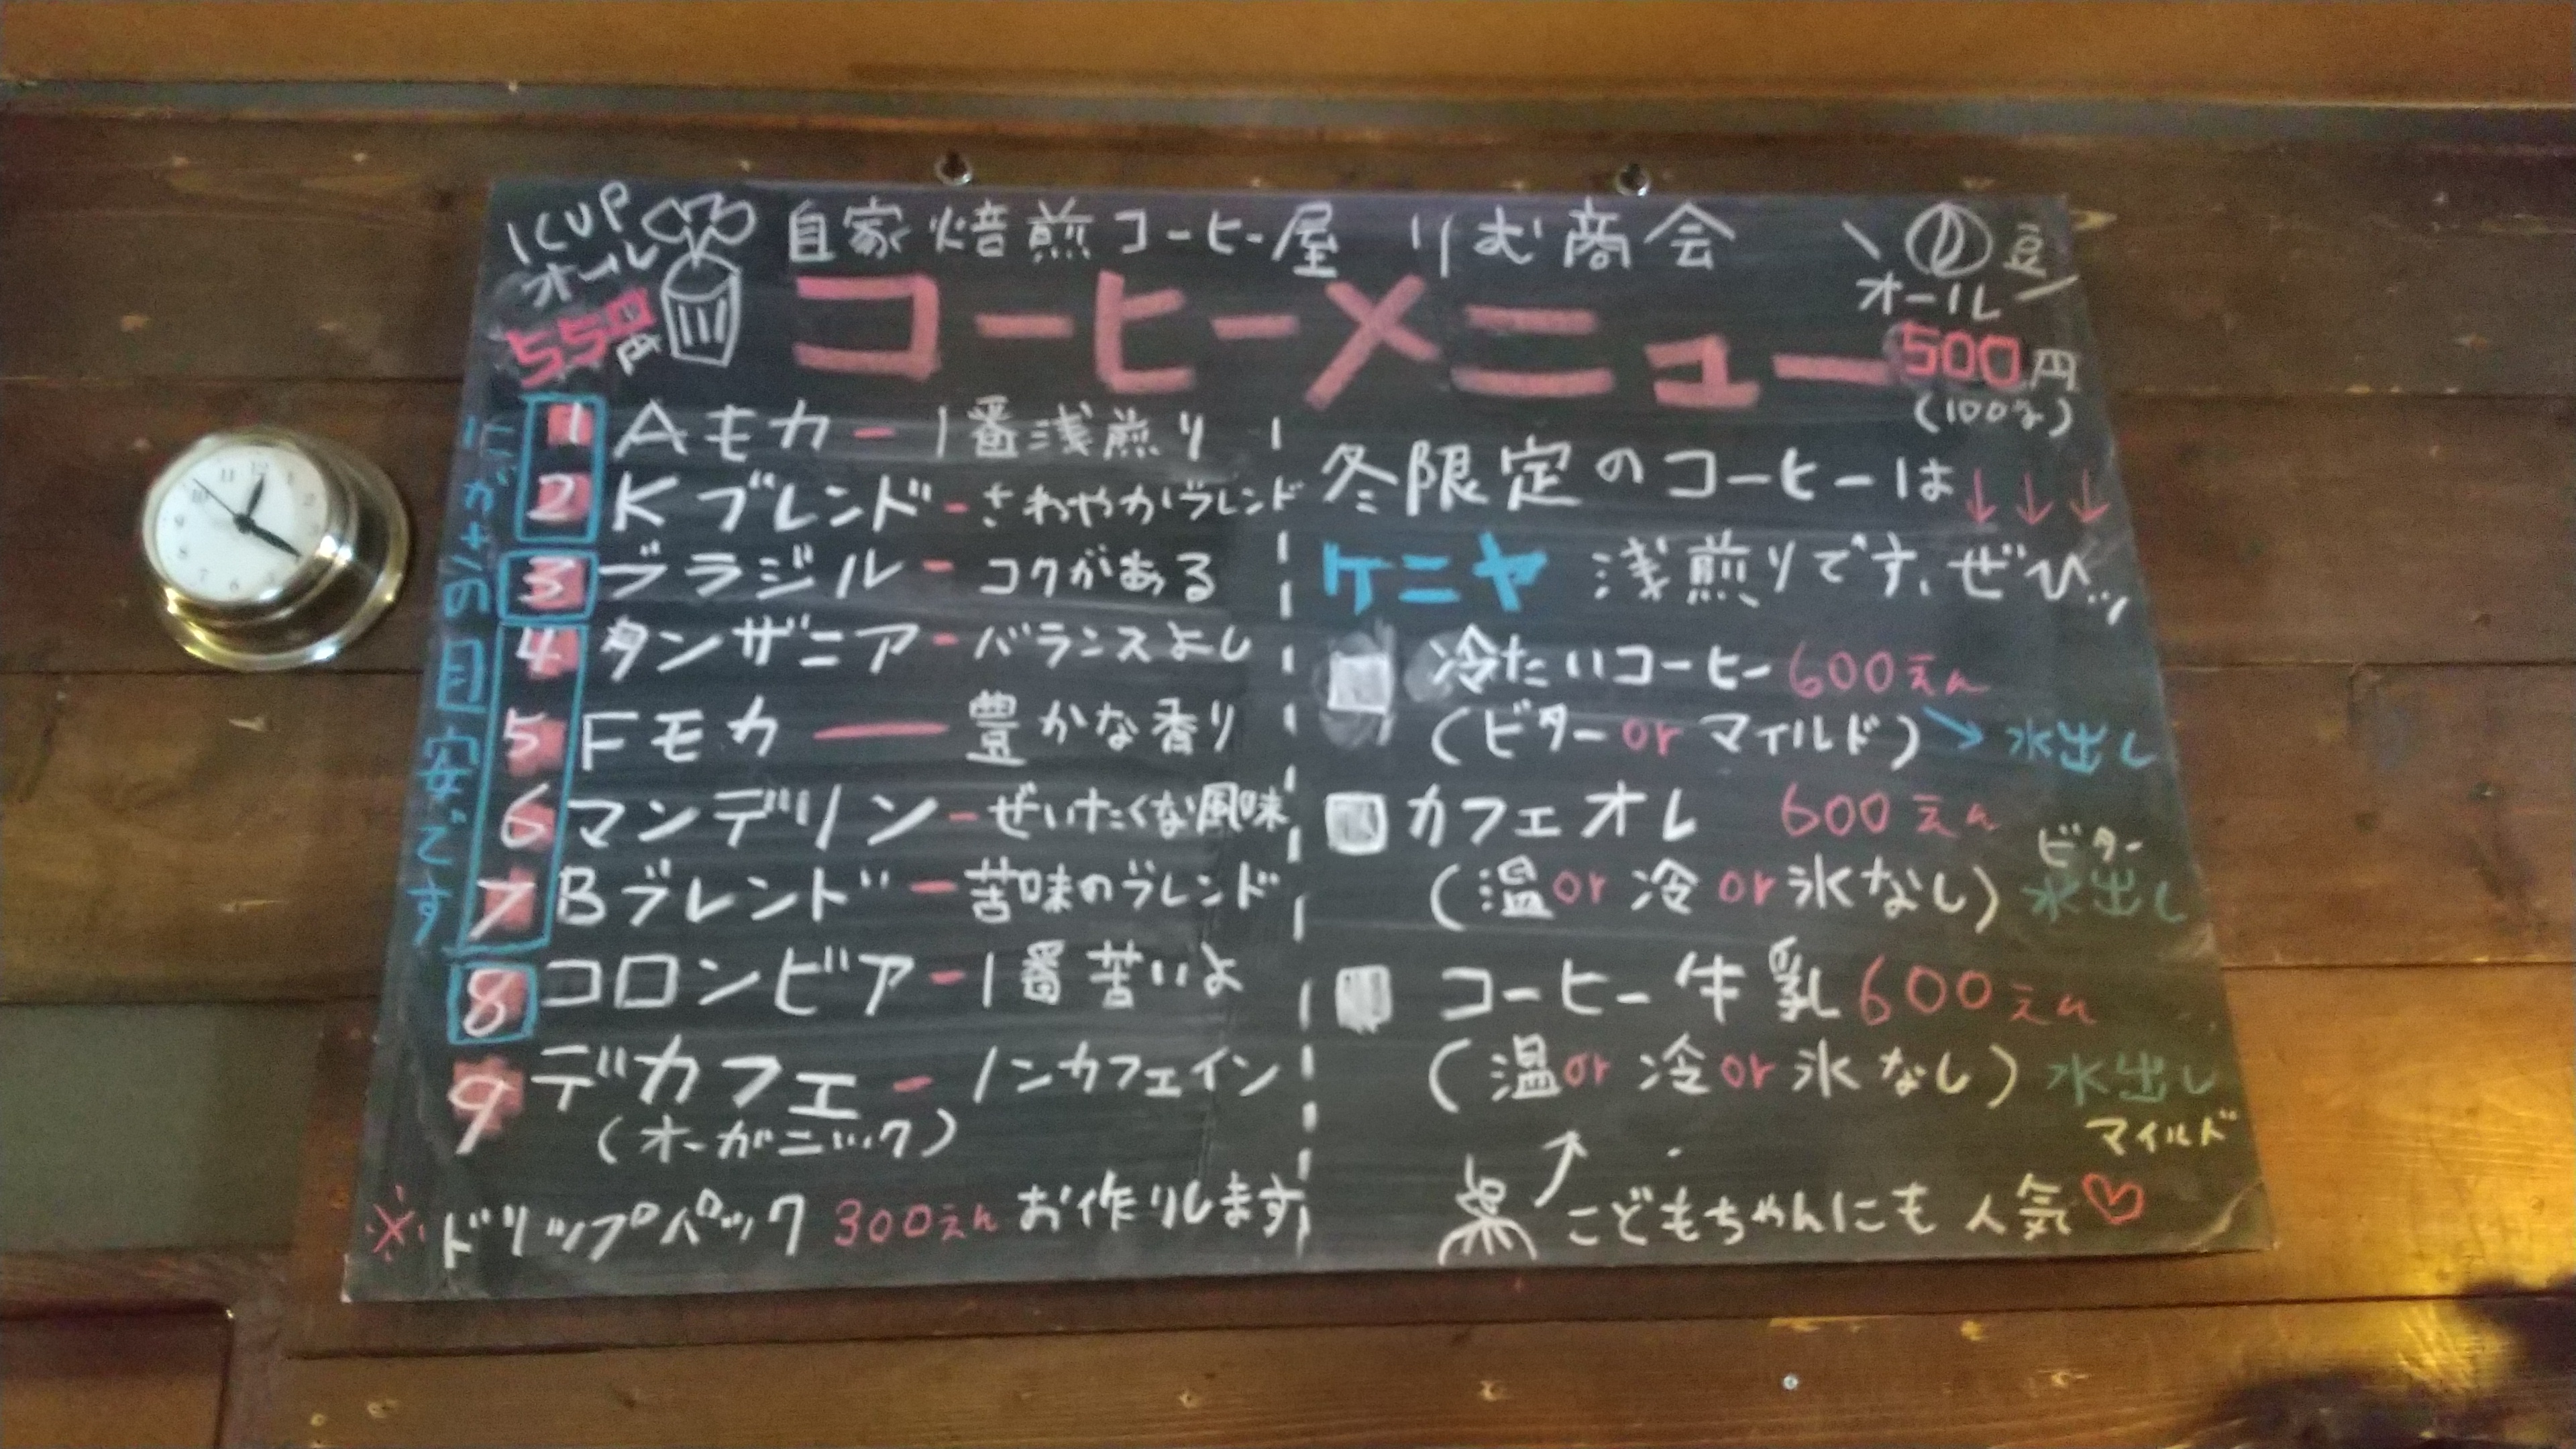 1CUP
オール
550円
自家焙煎コーヒー屋 りむ商会
コーヒーメニュー
豆
オール
500円
(100g)
にがさの目安です
1 Aモカ - 1番浅煎り
2 Kブレンド - さわやかブレンド
3 ブラジル - コクがある
4 タンザニア - バランスよし
5 Fモカ ー 豊かな香り
6 マンデリン - ぜいたくな風味
7 Bブレンド - 苦味のブレンド
8 コロンビア - 1番苦いよ
9 デカフェ - ノンカフェイン
(オーガニック)
※ドリップパック 300えん お作りします
冬限定のコーヒーは↓↓↓
ケニヤ 浅煎りです、ぜひ
冷たいコーヒー 600えん
(ビターorマイルド)→水出し
カフェオレ 600えん
(温or冷or氷なし) ビター
水出し
コーヒー牛乳 600えん
(温or冷or氷なし) 水出し
マイルド
こどもちゃんにも人気♡
12
1
2
3
6
7
8
9
10
11